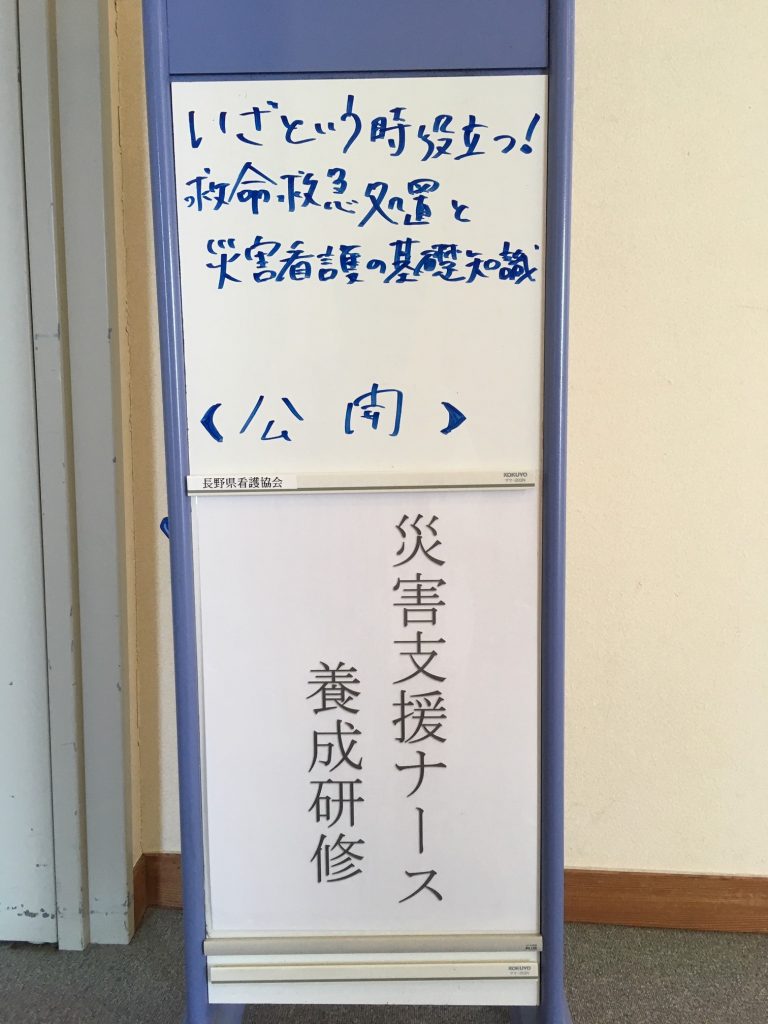 いざという時役立つ!
救命救急処置と
災害看護の基礎知識
〈公開〉
長野県看護協会
KOKUYO
災害支援ナース
養成研修
KOKUYO